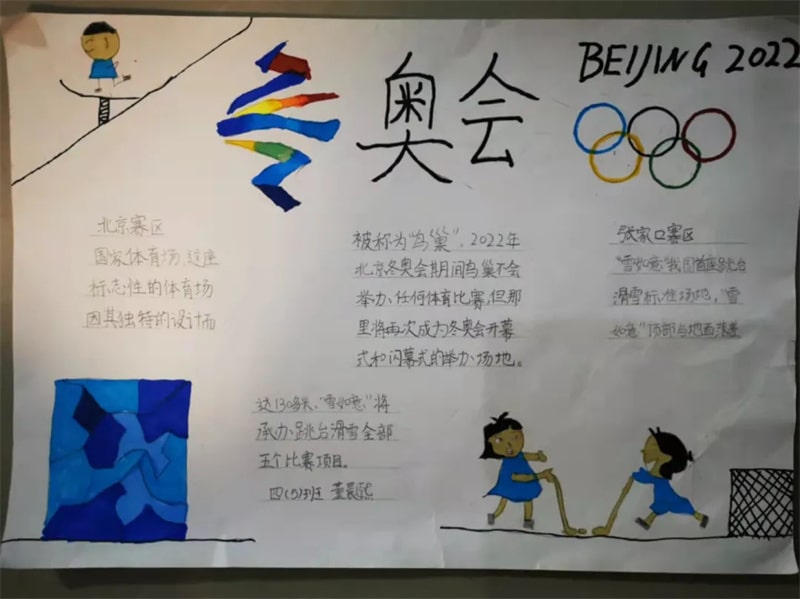 奥会
BEIJING 2022
北京赛区
国家体育场,这座
标志性的体育场
因其独特的设计而
被称为"鸟巢"，2022年
北京冬奥会期间鸟巢不会
举办任何体育比赛,但那
里将再次成为冬奥会开幕
式和闪幕式的举办场地。
张家口赛区
"雪如意"我国首座跳台
滑雪标准场地，"雪
如意"顶部与地面落差
达130多米,"雪如意"将
承办跳台滑雪全部
五个比赛项目。
四(5)班 董晨熙